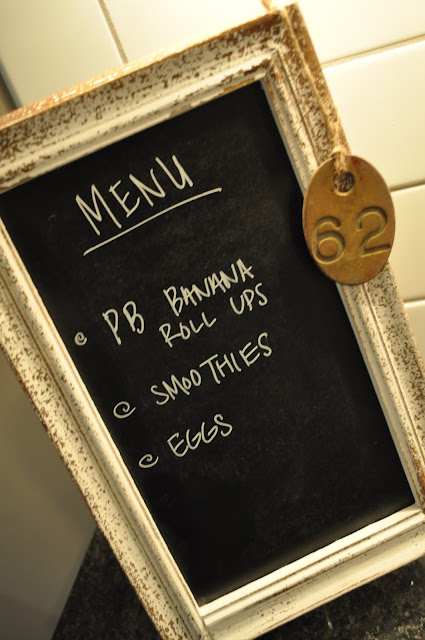 MENU
62
PB BANANA
ROLL UPS
SMOOTHIES
EGGS